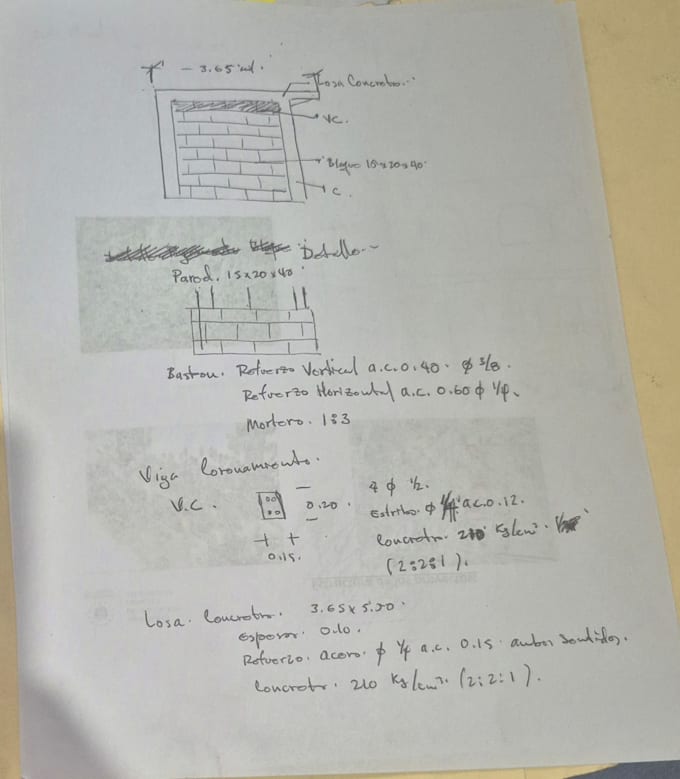 3.65 ml.
Losa Concreto.
VC.
Bloque 15x20x40.
C.
Detalle.
Pared. 15x20x40.
Baston. Refuerzo Vertical a.c. 0.40. ϕ 3/8.
Refuerzo Horizontal a.c. 0.60 ϕ 1/4.
Mortero. 1:3
Viga Coronamiento.
V.C. 0.20. 4 ϕ 1/2.
Estribo. ϕ 1/4 a.c. 0.12.
0.15. Concreto. 210 Kg/cm².
(2:2:1).
Losa. Concreto. 3.65 x
Espesor. 0.10.
Refuerzo. acero. ϕ 1/4 a.c. 0.15. ambos sentidos.
Concreto. 210 Kg/cm². (2:2:1).